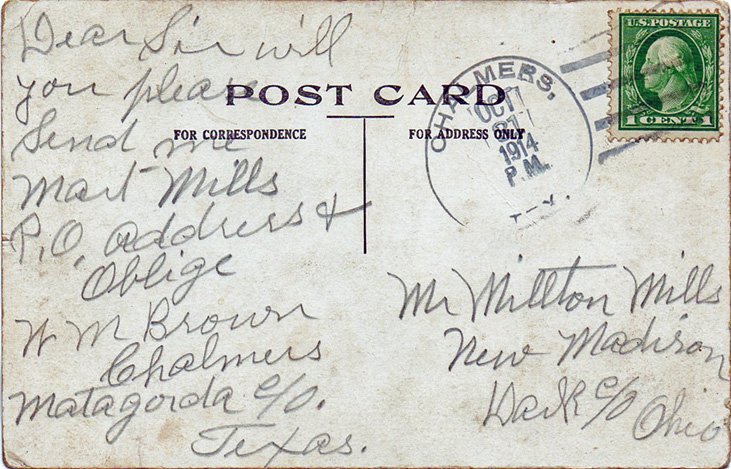 Dear Sir will
you please
Send me
Mart Mills
P.O. address &
Oblige
W M Brown
Chalmers
Matagorda c/o.
Texas.
POST CARD
FOR CORRESPONDENCE
FOR ADDRESS ONLY
CHALMERS,
OCT
1914
P.M.
U.S. POSTAGE
1 CENT 1
Mr Millton Mills
New Madison
Dark c/o Ohio